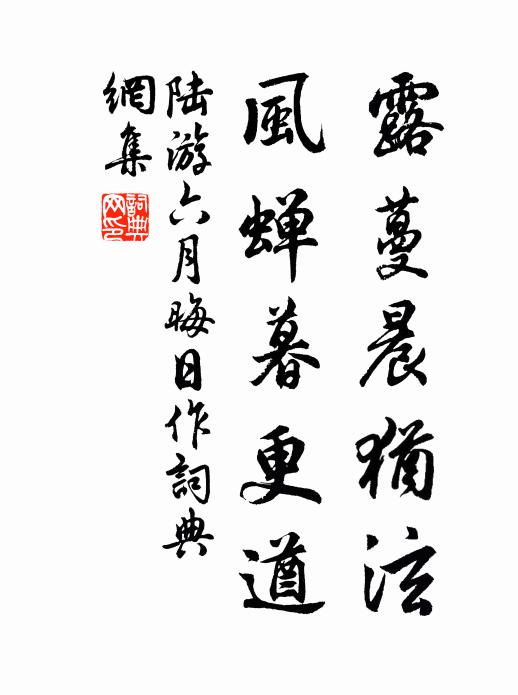 露蔓晨猶泫
風蟬暮更遒
陸游六月晦日作詞典
網集
詞典网印